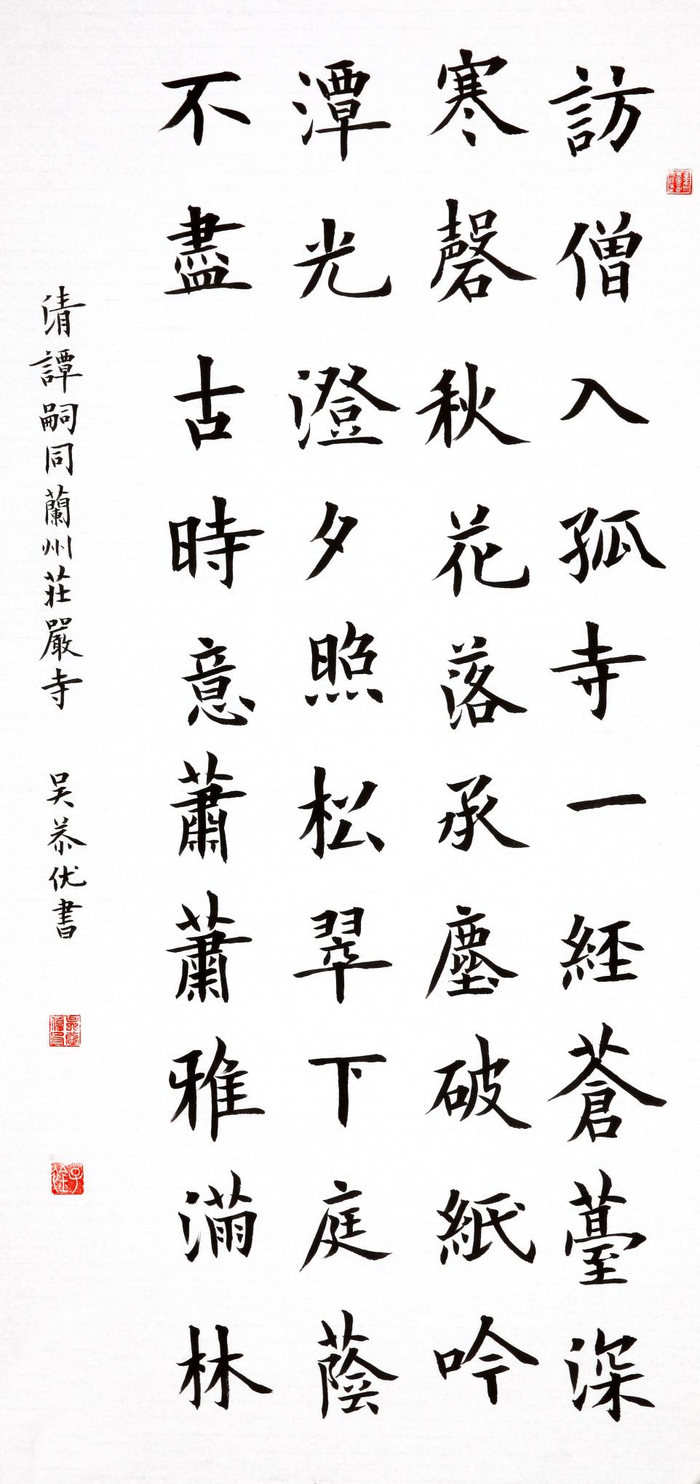 訪僧入孤寺一經蒼薹深
寒磬秋花落承塵破紙吟
潭光澄夕照松翠下庭蔭
不盡古時意蕭蕭雅滿林
清譚嗣同蘭州莊嚴寺 吴恭优書